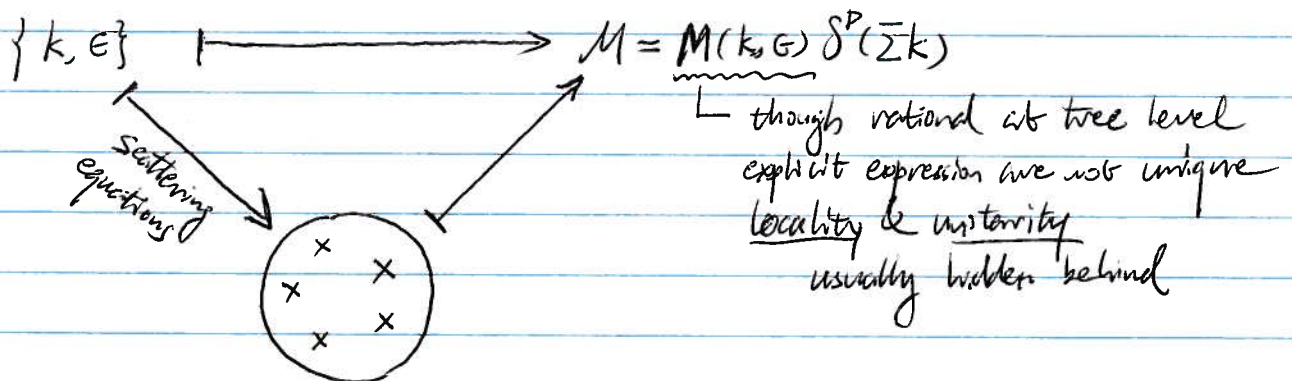 {k, ϵ} ⟼ M = M(k, ϵ) δᴰ(Σk)
though rational at tree level
explicit expression are not unique
locality & unitarity
usually hidden behind
scattering
equations